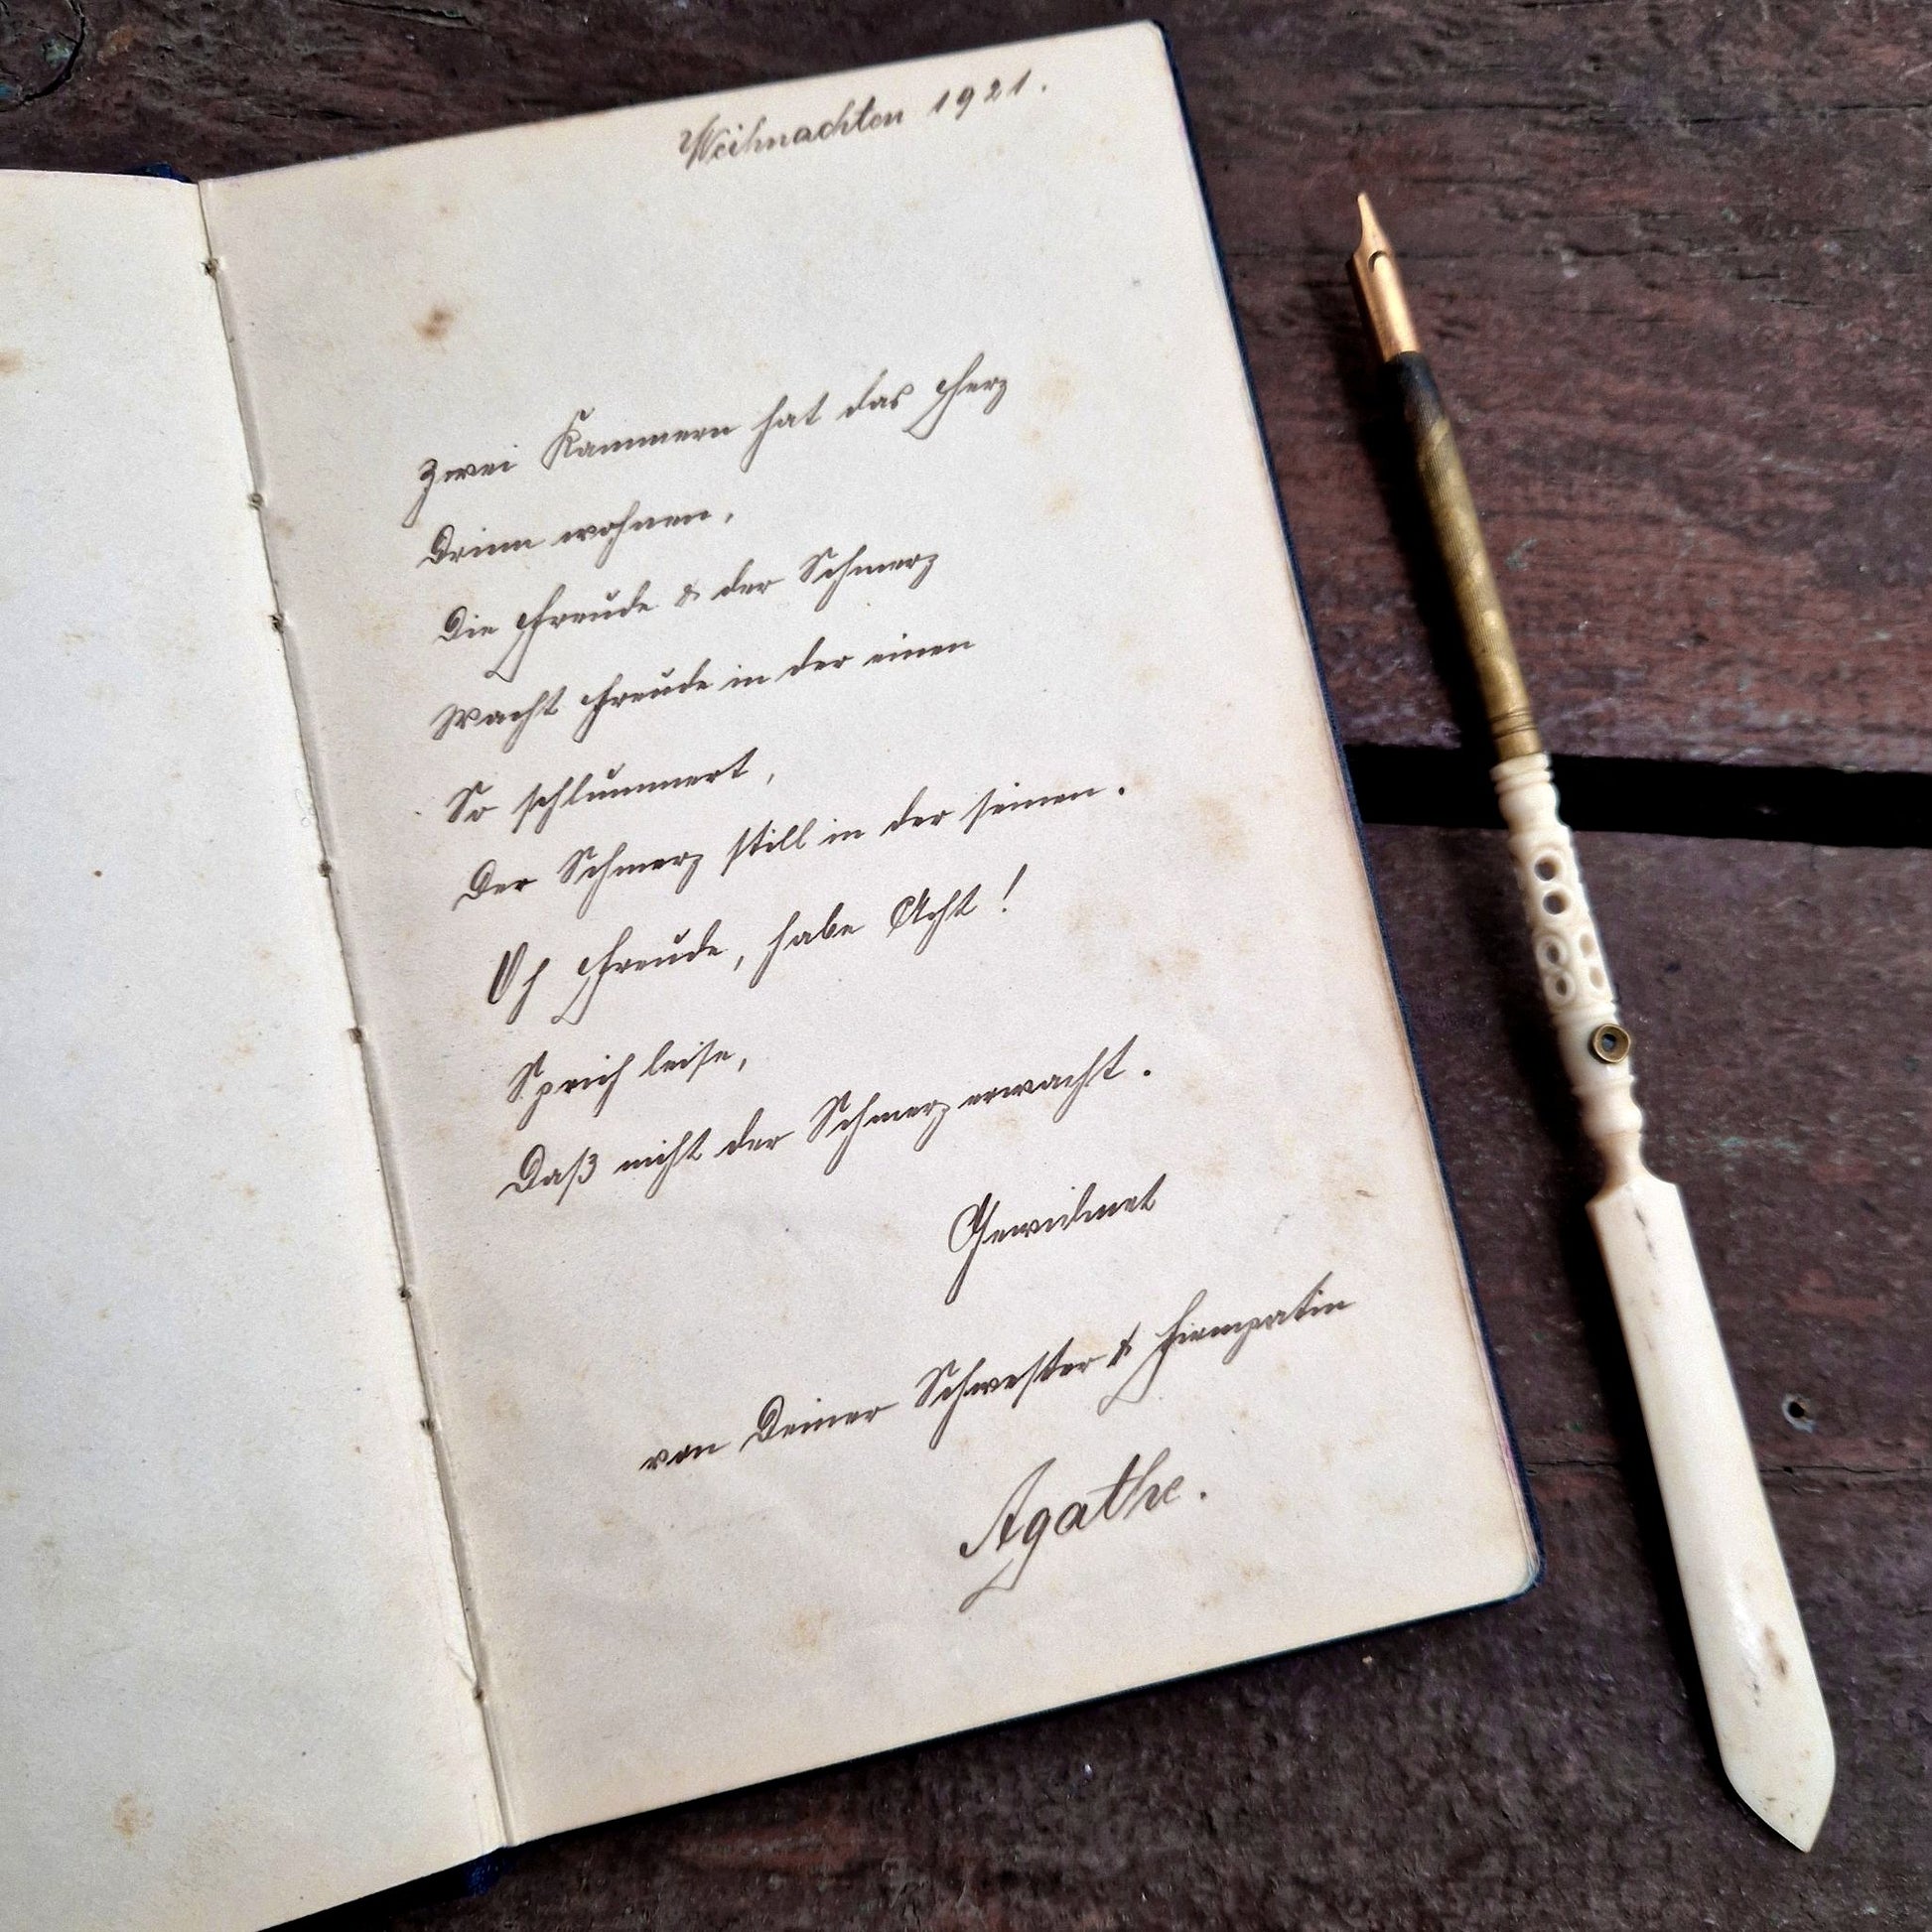 Weihnachten 1921.
Zwei Kammern hat das Herz
Drinn wohnen,
Die Freude & der Schmerz
Wacht Freude in der einen
So schlummert,
Der Schmerz still in der seinen.
Oh Freude, habe Acht!
Sprich leise,
Daß nicht der Schmerz erwacht.
Gewidmet
von Deiner Schwester & Firmpatin
Agathe.